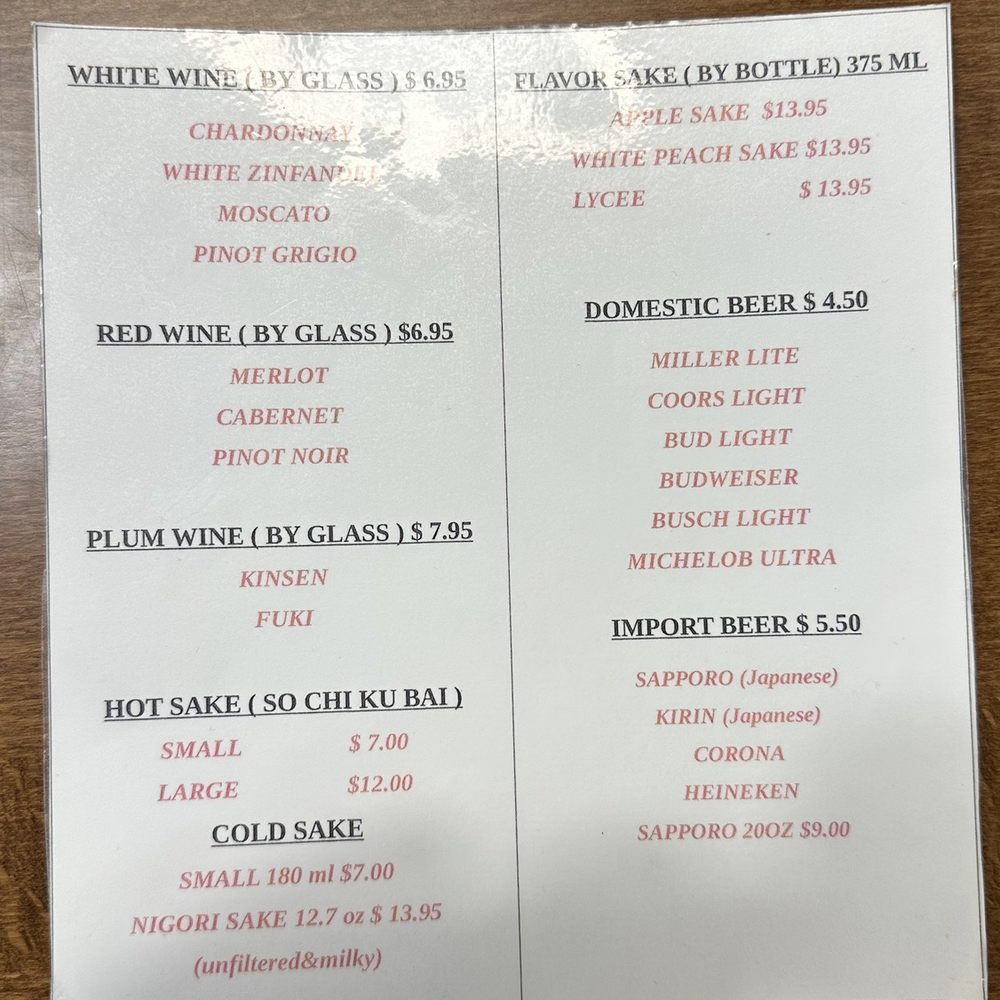 WHITE WINE ( BY GLASS ) $ 6.95
CHARDONNAY
WHITE ZINFANDEL
MOSCATO
PINOT GRIGIO
RED WINE ( BY GLASS ) $6.95
MERLOT
CABERNET
PINOT NOIR
PLUM WINE ( BY GLASS ) $ 7.95
KINSEN
FUKI
HOT SAKE ( SO CHI KU BAI )
SMALL $ 7.00
LARGE $12.00
COLD SAKE
SMALL 180 ml $7.00
NIGORI SAKE 12.7 oz $ 13.95
(unfiltered&milky)
FLAVOR SAKE ( BY BOTTLE) 375 ML
APPLE SAKE $13.95
WHITE PEACH SAKE $13.95
LYCEE $ 13.95
DOMESTIC BEER $ 4.50
MILLER LITE
COORS LIGHT
BUD LIGHT
BUDWEISER
BUSCH LIGHT
MICHELOB ULTRA
IMPORT BEER $ 5.50
SAPPORO (Japanese)
KIRIN (Japanese)
CORONA
HEINEKEN
SAPPORO 20OZ $9.00